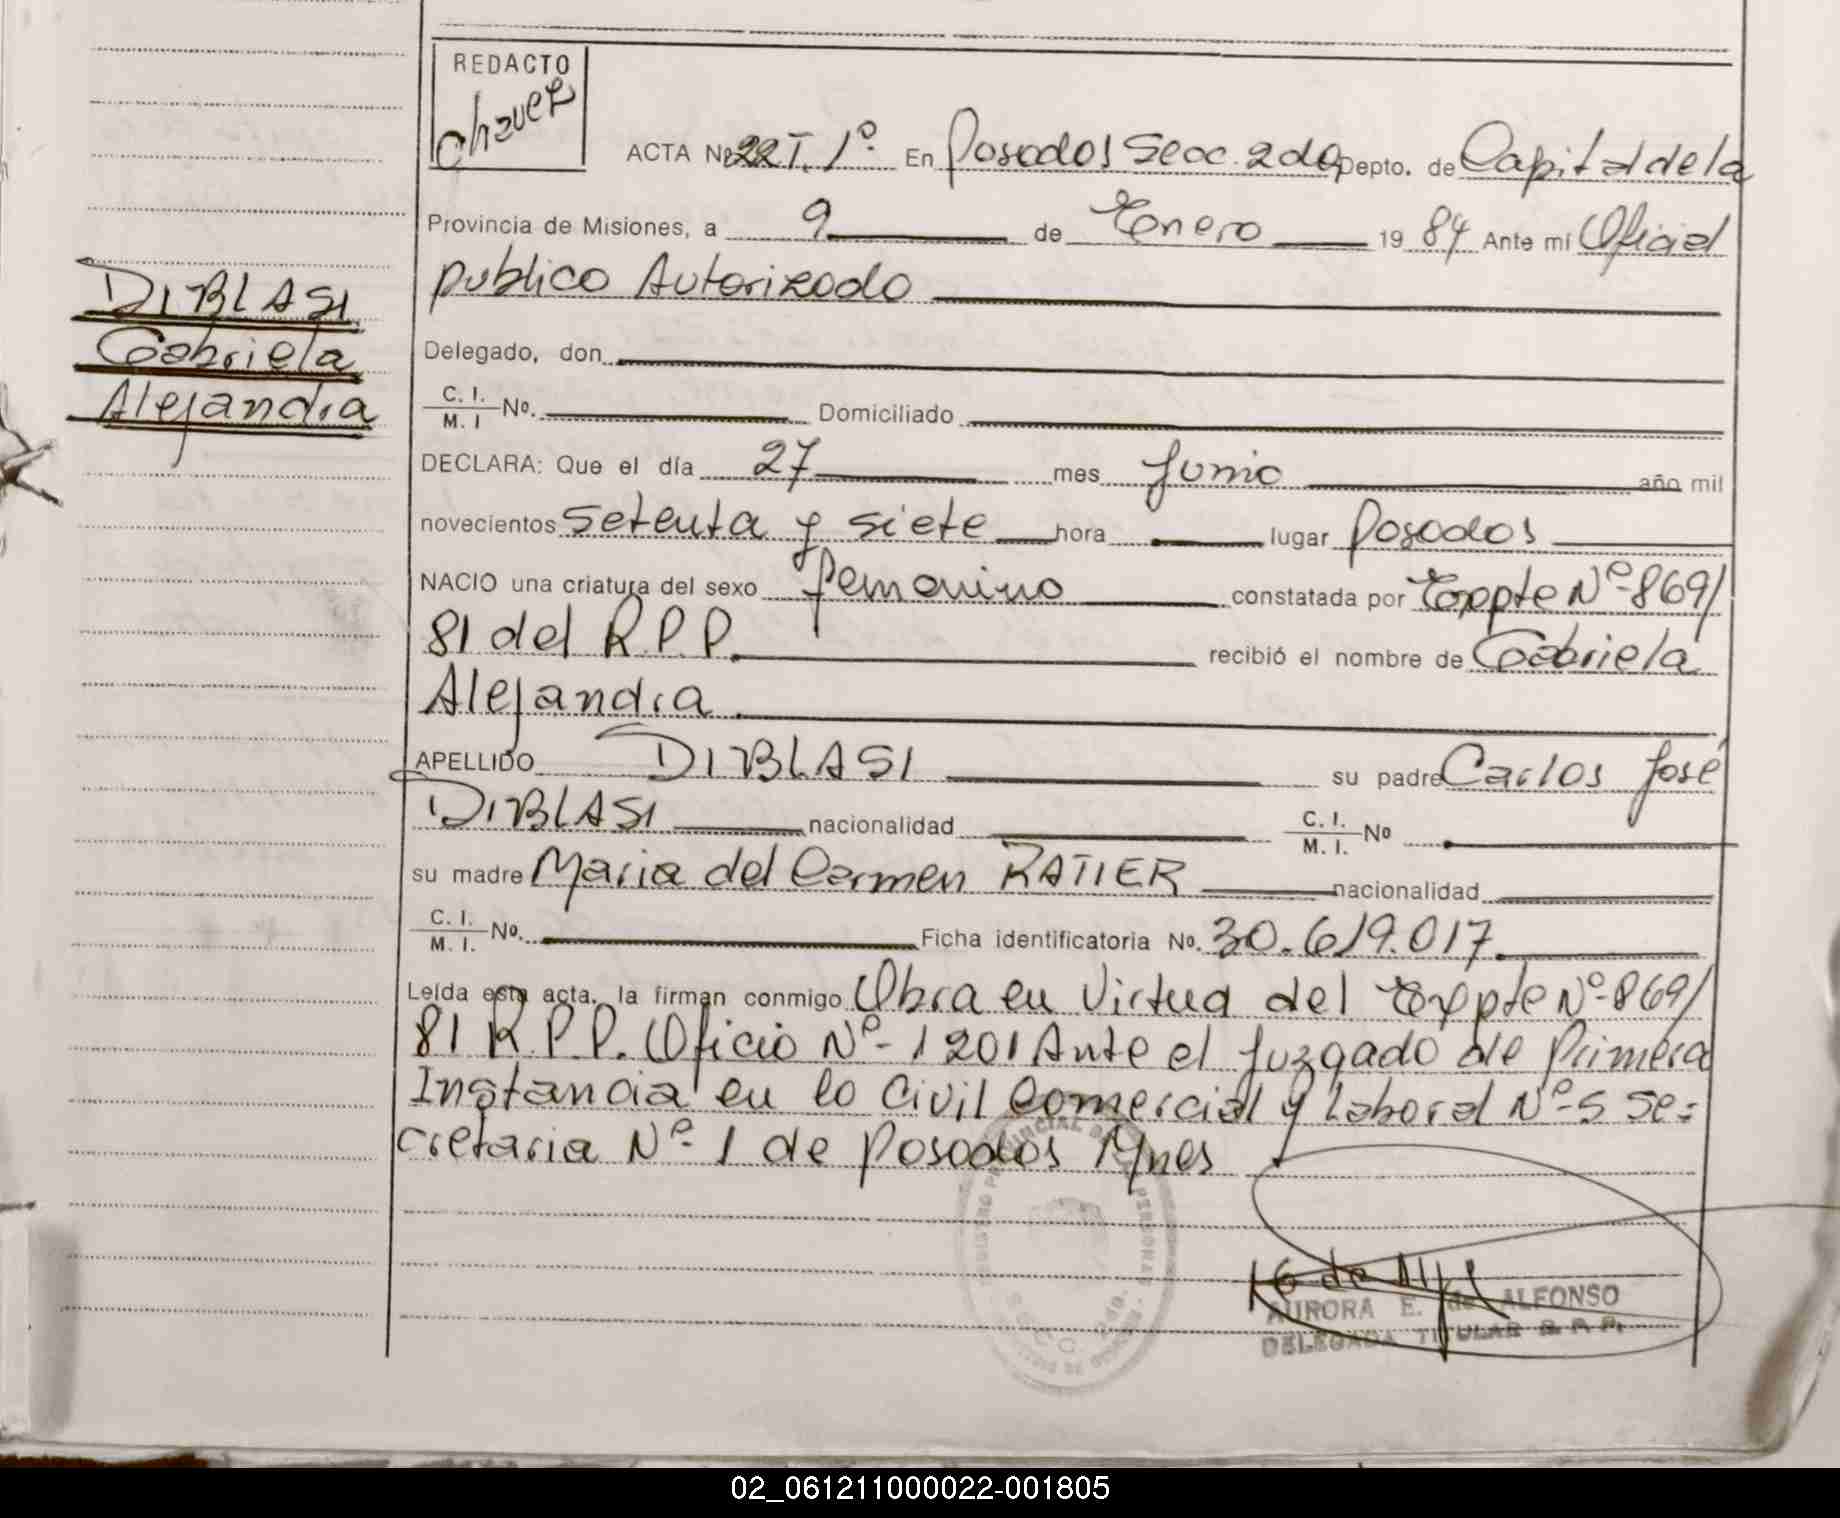 REDACTO
Chavez
ACTA Nº 22 T. 1º En Posadas Secc. 2da Depto. de Capital de la
Provincia de Misiones, a 9 de Enero 1984 Ante mí Oficial
publico Autorizado
Delegado, don
C. I. / M. I Nº. Domiciliado
DECLARA: Que el día 27 mes Junio año mil
novecientos setenta y siete hora lugar Posadas
NACIO una criatura del sexo femenino constatada por Exppte Nº-869/
81 del R.P.P. recibió el nombre de Gabriela
Alejandra
APELLIDO DIBLASI su padre Carlos José
DIBLASI nacionalidad C. I. / M. I. Nº
su madre Maria del Carmen RATIER nacionalidad
C. I. / M. I. Nº. Ficha identificatoria No. 30.619.017
Leída esta acta, la firman conmigo Obra en Virtud del Exppte Nº-869/
81 R.P.P. Oficio Nº-1201 Ante el Juzgado de Primera
Instancia en lo Civil Comercial y Laboral Nº-5 Se-
cretaria Nº-1 de Posadas Mnes
DIBLASI
Gabriela
Alejandra
AURORA E. de ALFONSO
DELEGADA TITULAR R. P. P.
02_061211000022-001805